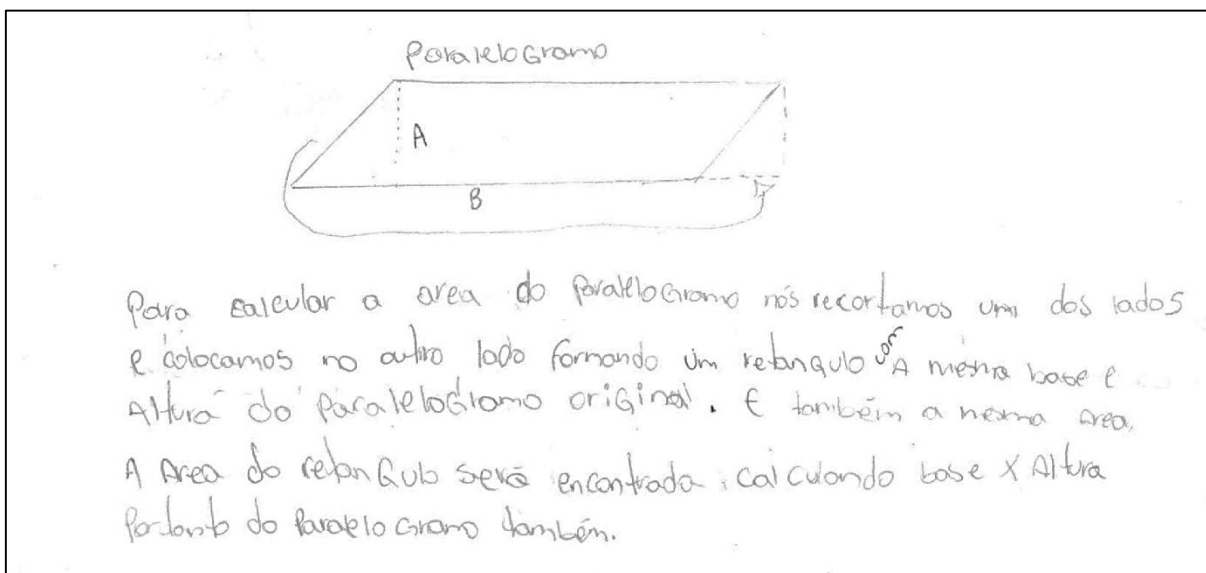 ParaleloGramo
A
B
Para calcular a area do ParaleloGramo nós recortamos um dos lados
e colocamos no outro lado formando um retanGulo com A mesma base e
Altura do ParaleloGramo oriGinal. E também a mesma area.
A Area do retanGulo será encontrada calculando base X Altura
Portanto do ParaleloGramo também.